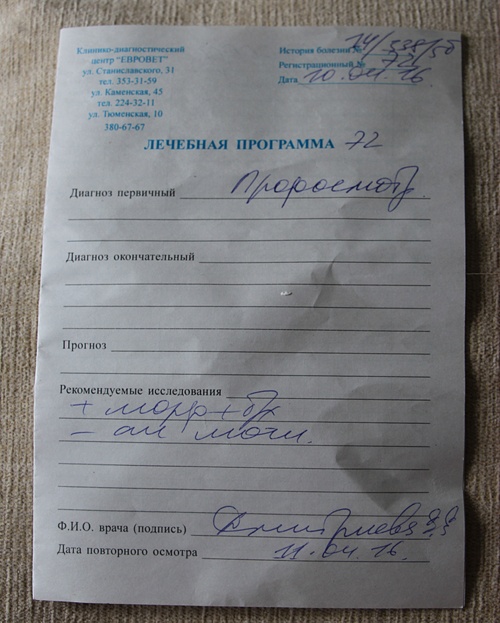 Клинико-диагностический
центр "ЕВРОВЕТ"
ул. Станиславского, 31
тел. 353-31-59
ул. Каменская, 45
тел. 224-32-11
ул. Тюменская, 10
380-67-67
История болезни № 14/538/50
Регистрационный № 72
Дата 10.04.16
ЛЕЧЕБНАЯ ПРОГРАММА 72
Диагноз первичный Профосмотр
Диагноз окончательный
Прогноз
Рекомендуемые исследования
+ морф + б/х
- ан мочи.
Ф.И.О. врача (подпись) Дмитриева
Дата повторного осмотра 11.04.16.